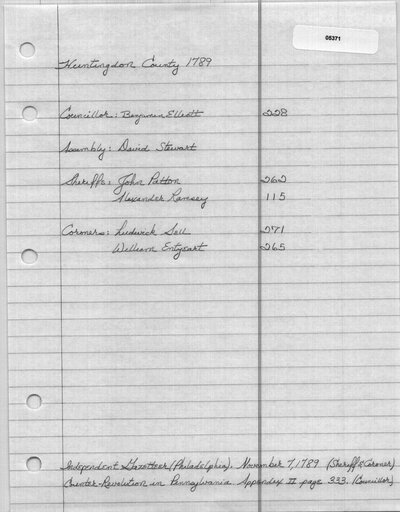 05371
Huntingdon County 1789
Councillor: Benjamin Elliott 228
Assembly: David Stewart
Sheriffs: John Patton 262
Alexander Ramsey 115
Coroners: Ludwick Sell 271
William Entzeart 265
Independent Gazetteer (Philadelphia). November 7, 1789 (Sheriff & Coroner)
Counter-Revolution in Pennsylvania. Appendix II page 333. (Councillor)